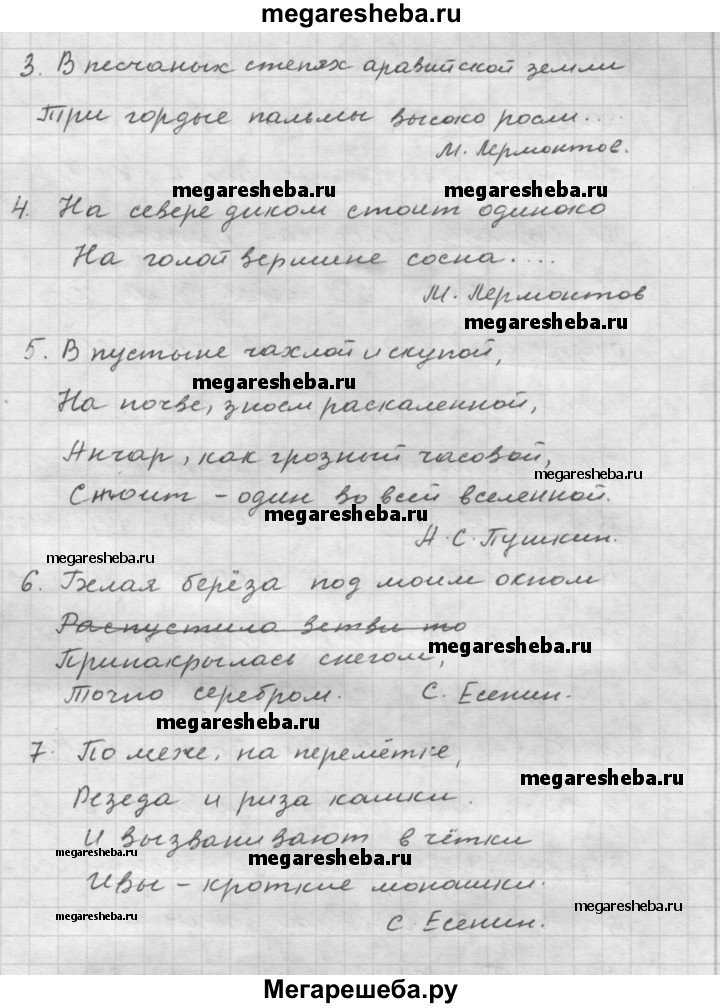 megaresheba.ru
3. В песчаных степях аравийской земли
Три гордые пальмы высоко росли....
М. Лермонтов.
megaresheba.ru
megaresheba.ru
4. На севере диком стоит одиноко
На голой вершине сосна....
М. Лермонтов
megaresheba.ru
5. В пустыне чахлой и скупой,
megaresheba.ru
На почве, зноем раскаленной,
Анчар, как грозный часовой,
megaresheba.ru
Стоит - один во всей вселенной.
megaresheba.ru
А. С. Пушкин.
megaresheba.ru
6. Белая берёза под моим окном
Распустила ветви то
megaresheba.ru
Принакрылась снегом,
Точно серебром. С. Есенин.
megaresheba.ru
7. По меже, на перемётке,
megaresheba.ru
Резеда и риза кашки.
И вызванивают в чётки
megaresheba.ru
megaresheba.ru
Ивы - кроткие монашки.
megaresheba.ru
megaresheba.ru
С. Есенин.
Мегарешеба.ру